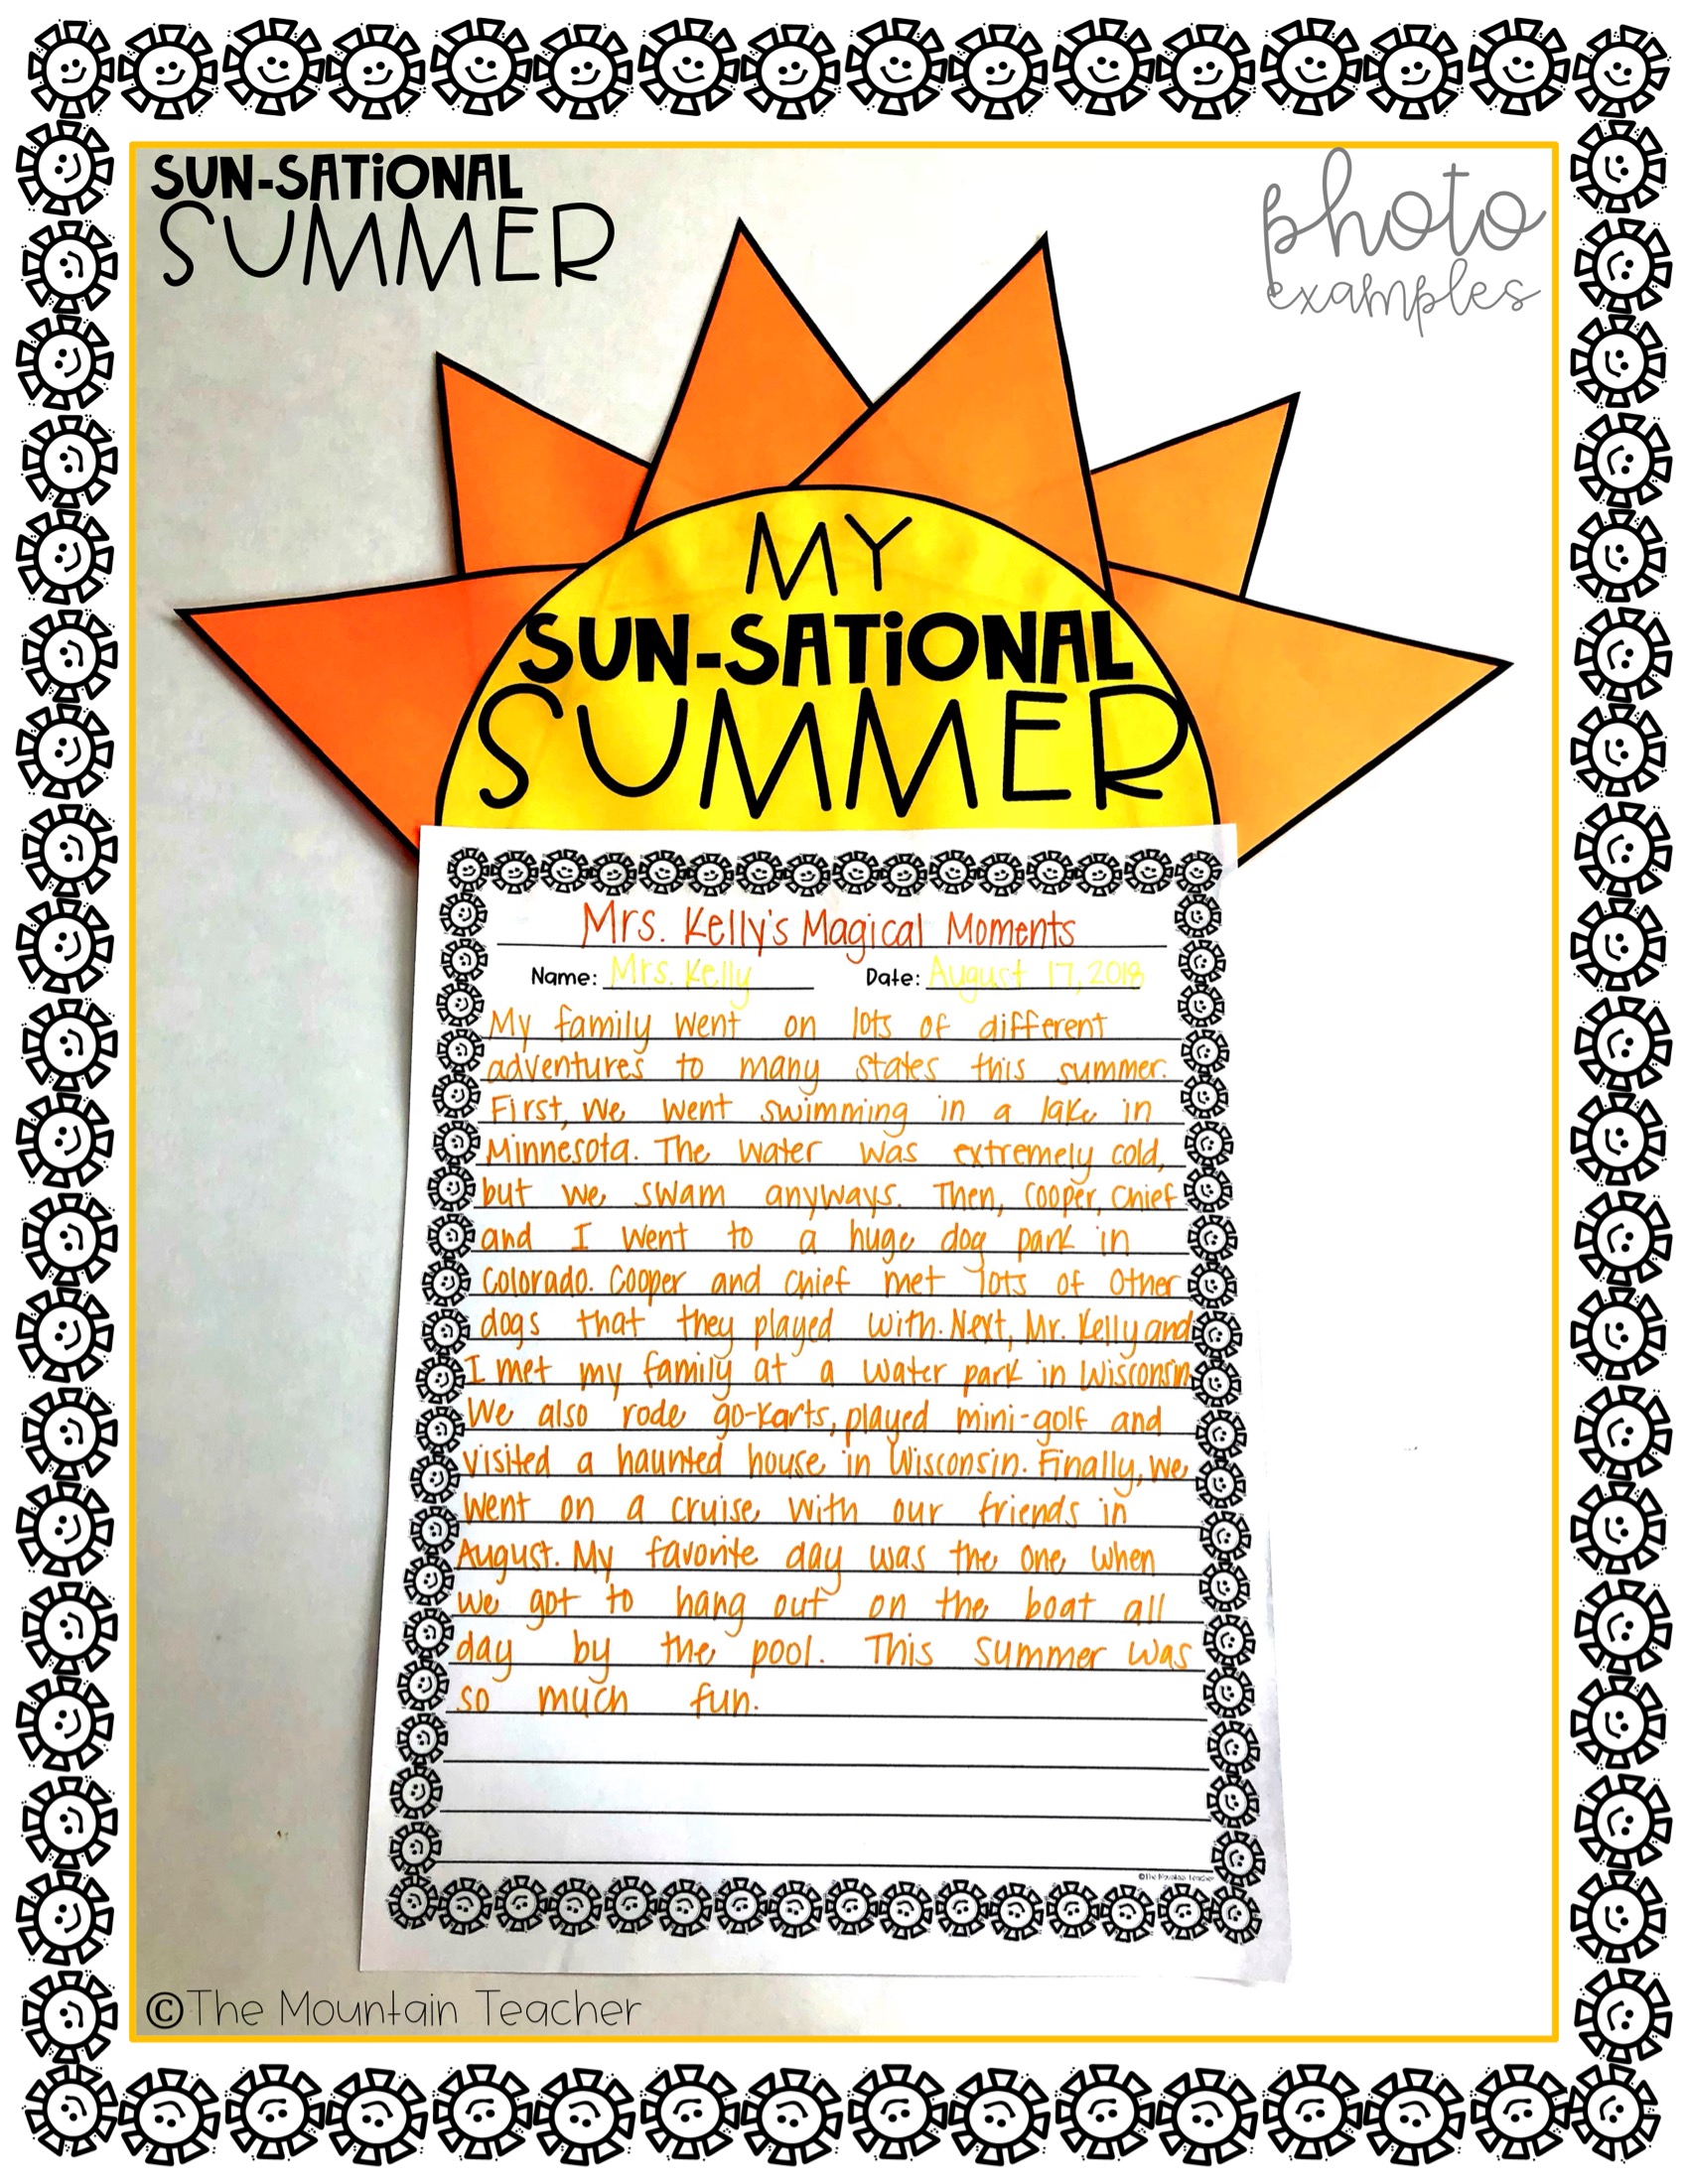 SUN-SATIONAL
SUMMER
photo
examples
MY
SUN-SATIONAL
SUMMER
Mrs. Kelly's Magical Moments
Name: Mrs. Kelly Date: August 17, 2018
My family went on lots of different
adventures to many states this summer.
First, we went swimming in a lake in
Minnesota. The water was extremely cold,
but we swam anyways. Then, Cooper, Chief
and I went to a huge dog park in
Colorado. Cooper and Chief met lots of other
dogs that they played with. Next, Mr. Kelly and
I met my family at a water park in Wisconsin.
We also rode go-karts, played mini-golf and
visited a haunted house in Wisconsin. Finally, we
went on a cruise with our friends in
August. My favorite day was the one when
we got to hang out on the boat all
day by the pool. This summer was
so much fun.
©The Mountain Teacher
©The Mountain Teacher